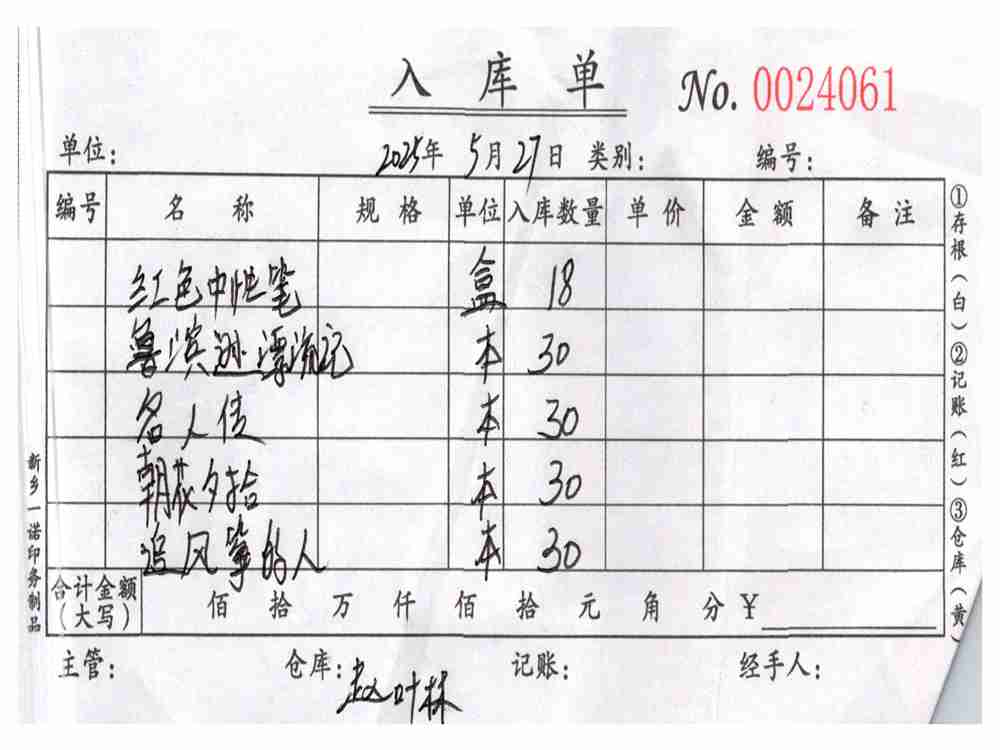 入库单 No. 0024061
单位: 2025年 5月27日 类别: 编号:
编号 名称 规格 单位 入库数量 单价 金额 备注
红色中性笔 盒 18
鲁滨逊漂流记 本 30
名人传 本 30
朝花夕拾 本 30
追风筝的人 本 30
合计金额(大写) 佰 拾 万 仟 佰 拾 元 角 分 ¥
主管: 仓库: 赵叶林 记账: 经手人:
①存根(白)②记账(红)③仓库(黄)
新乡一诺印务制品